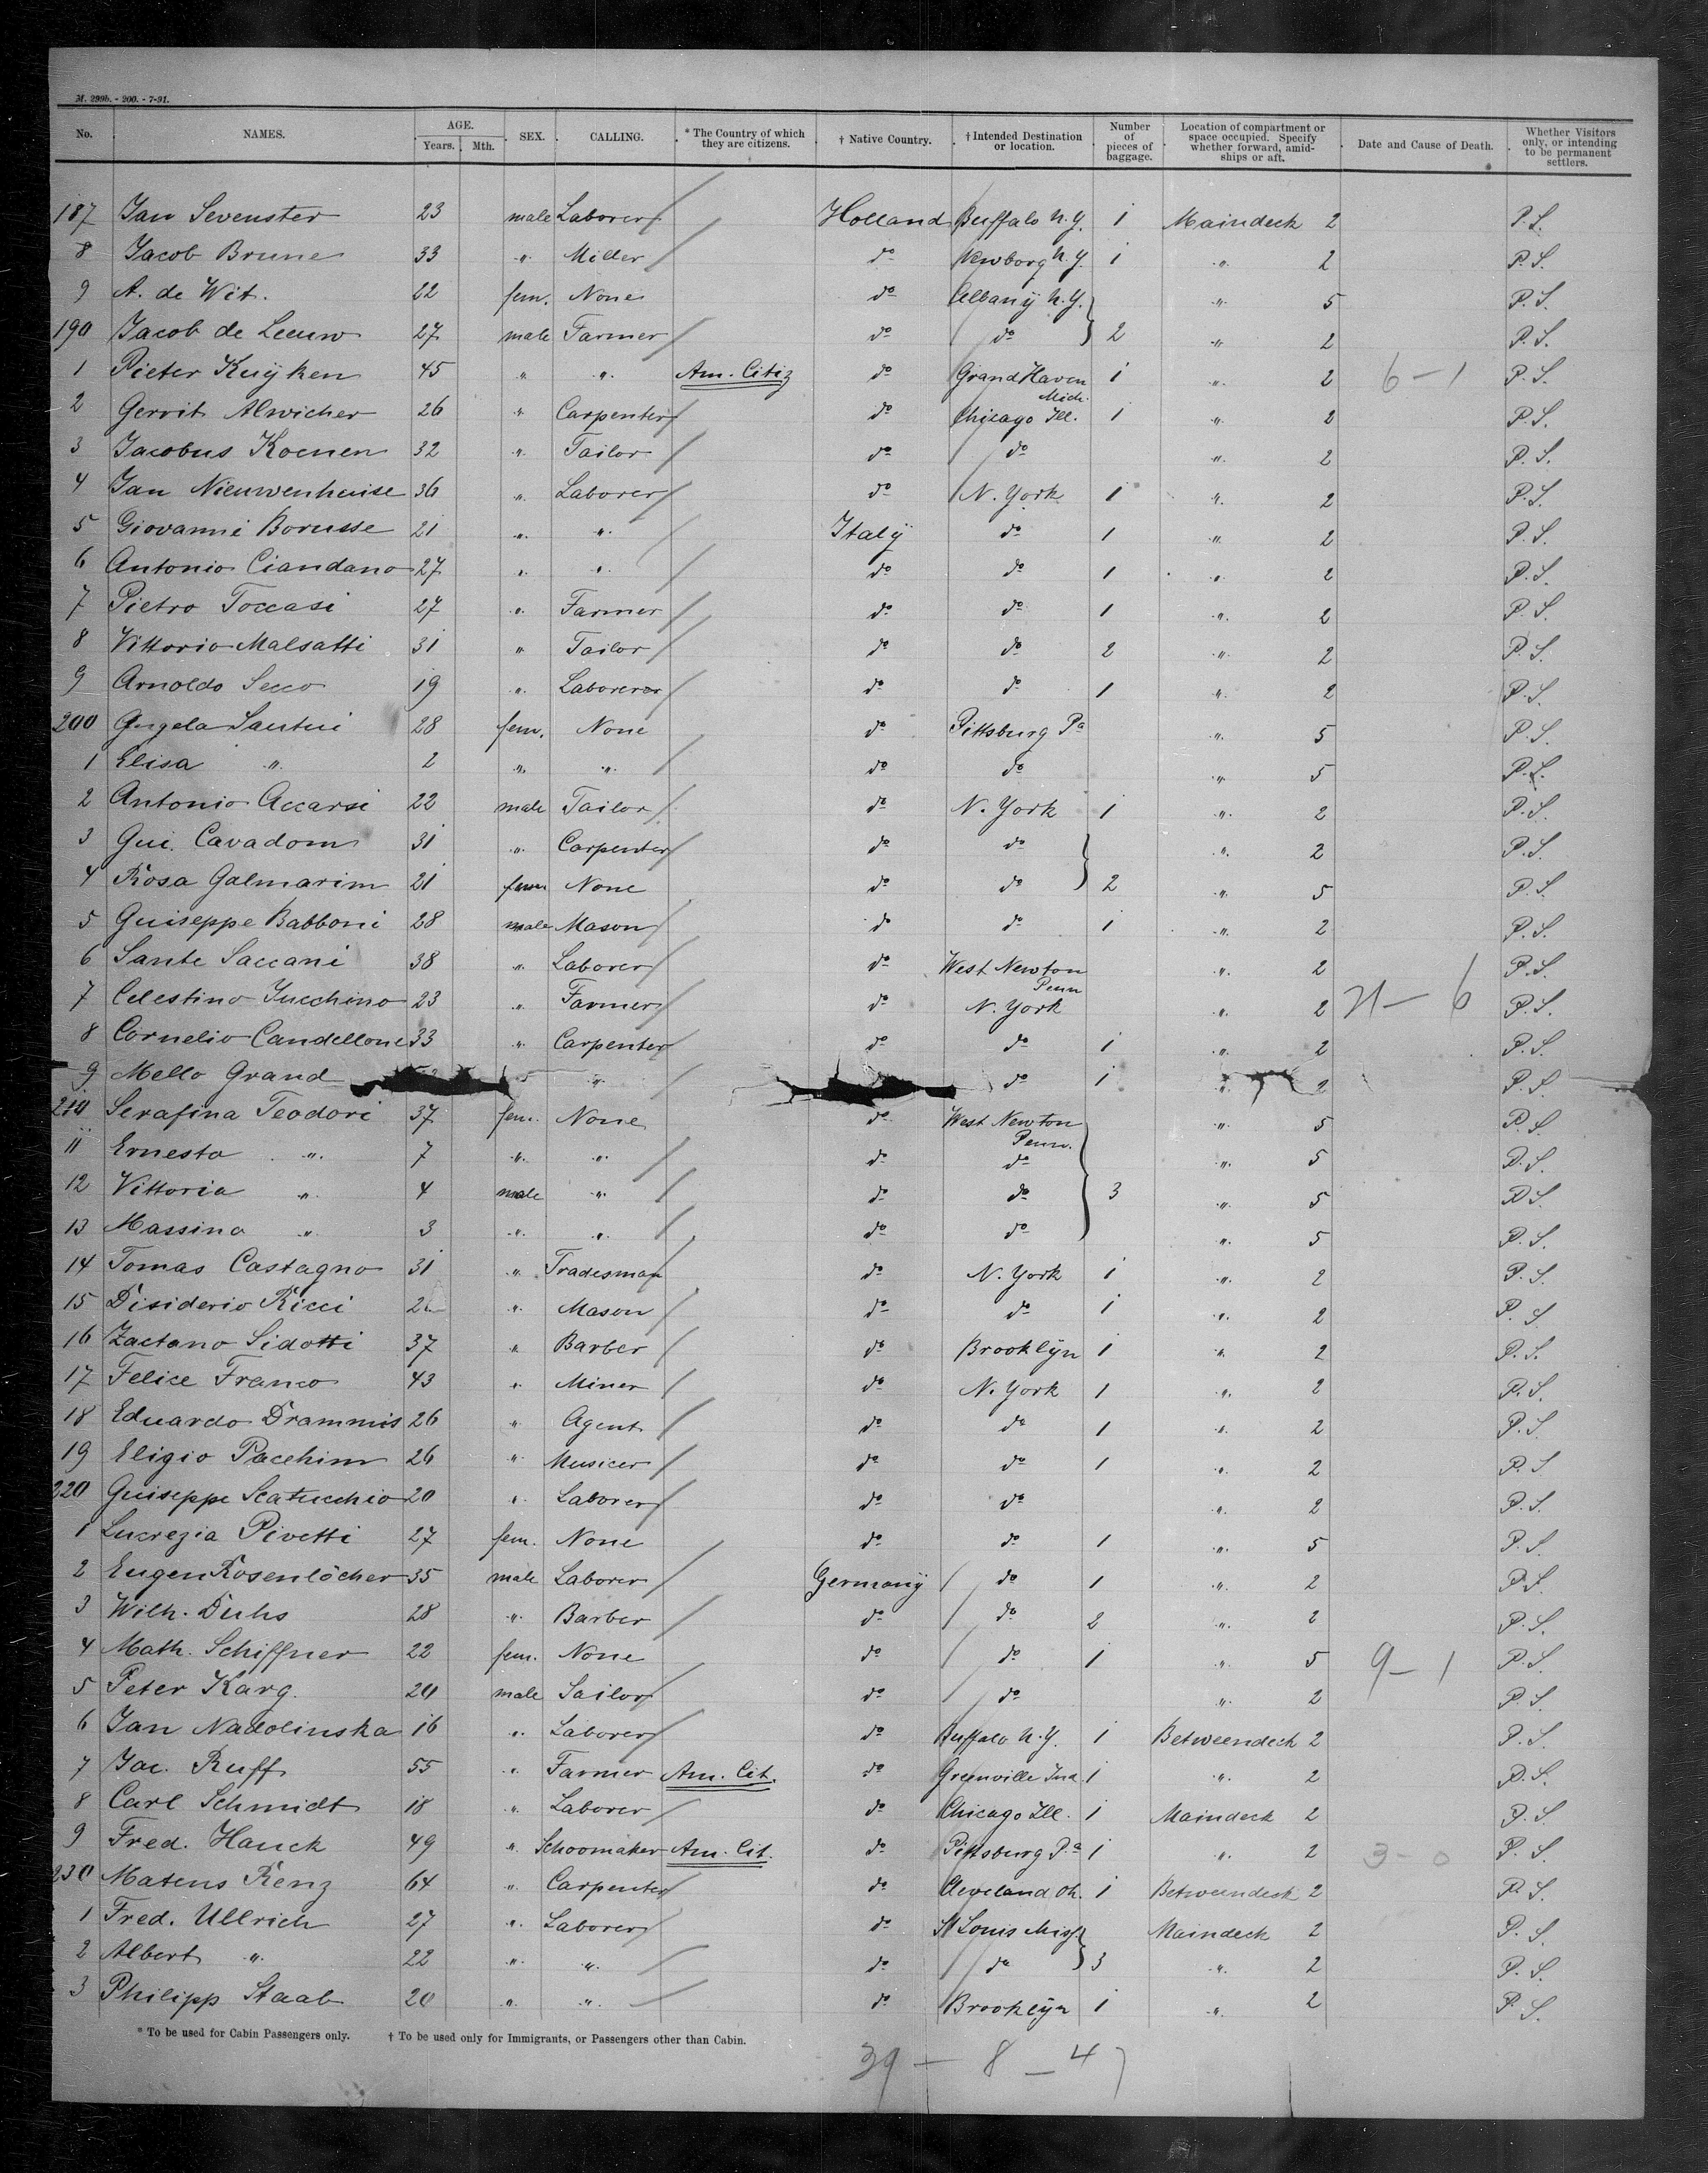 M. 299b. - 200. - 7-91.
No. NAMES. AGE. Years. Mth. SEX. CALLING. * The Country of which they are citizens. † Native Country. † Intended Destination or location. Number of pieces of baggage. Location of compartment or space occupied. Specify whether forward, amidships or aft. Date and Cause of Death. Whether Visitors only, or intending to be permanent settlers.
187 Jan Sevenster 23 male Laborer Holland Buffalo N.Y. 1 Maindeck 2 P.S.
8 Jacob Brune 33 " Miller do Newborg N.Y. 1 " 2 P.S.
9 A. de Wit. 22 fem. None do Albany N.Y. " 5 P.S.
190 Jacob de Leeuw 27 male Farmer do do 2 " 2 P.S.
1 Pieter Kuÿken 45 " " Am. Citiz do Grand Haven Mich. 1 " 2 6-1 P.S.
2 Gerrit Alwicher 26 " Carpenter do Chicago Ill. 1 " 2 P.S.
3 Jacobus Koenen 32 " Tailor do do " 2 P.S.
4 Jan Nieuwenhuise 36 " Laborer do N. York 1 " 2 P.S.
5 Giovanni Borusse 21 " " Italÿ do 1 " 2 P.S.
6 Antonio Ciandano 27 " " do do 1 " 2 P.S.
7 Pietro Toccasi 27 " Farmer do do 1 " 2 P.S.
8 Vittorio Malsatti 31 " Tailor do do 2 " 2 P.S.
9 Arnoldo Secco 19 " Laborer do do 1 " 2 P.S.
200 Angela Santui 28 fem. None do Pittsburg Pa " 5 P.S.
1 Elisa " 2 " " do do " 5 P.S.
2 Antonio Accarsi 22 male Tailor do N. York 1 " 2 P.S.
3 Gui. Cavadom 31 " Carpenter do do " 2 P.S.
4 Rosa Galmarim 21 fem None do do 2 " 5 P.S.
5 Guiseppe Babboni 28 male Mason do do 1 " 2 P.S.
6 Sante Saccani 38 " Laborer do West Newton Penn " 2 P.S.
7 Celestino Jucchino 23 " Farmer do N. York " 2 21-6 P.S.
8 Cornelio Candellone 33 " Carpenter do do 1 " 2 P.S.
9 Mello Grand " do 1 2 P.S.
210 Serafina Teodori 37 fem. None do West Newton Penn. " 5 P.S.
11 Ernesta " 7 " " do do " 5 P.S.
12 Vittoria " 4 male " do do 3 " 5 P.S.
13 Massino " 3 " " do do " 5 P.S.
14 Tomas Castagno 31 " Tradesman do N. York 1 " 2 P.S.
15 Disiderio Ricci " Mason do do 1 " 2 P.S.
16 Zaetano Sidotti 37 " Barber do Brooklÿn 1 " 2 P.S.
17 Felice Franco 43 " Miner do N. York 1 " 2 P.S.
18 Eduardo Drammis 26 " Agent do do 1 " 2 P.S.
19 Eligio Pacchim 26 " Musicer do do 1 " 2 P.S.
220 Guiseppe Scatucchio 20 " Laborer do do " 2 P.S.
1 Lucrezia Pivetti 27 fem. None do do 1 " 5 P.S.
2 Eugen Rosenlöcher 35 male Laborer Germanÿ do 1 " 2 P.S.
3 Wilh. Duhs 28 " Barber do do 2 " 2 P.S.
4 Math. Schiffner 22 fem. None do do 1 " 5 9-1 P.S.
5 Peter Karg. 20 male Sailor do do " 2 P.S.
6 Jan Nadolinska 16 " Laborer do Buffalo N.Y. 1 Betweendeck 2 P.S.
7 Jac. Ruff 55 " Farmer Am. Cit. do Greenville Ind. 1 " 2 P.S.
8 Carl Schmidt 18 " Laborer do Chicago Ill. 1 Maindeck 2 P.S.
9 Fred. Hauck 49 " Schoomaker Am. Cit. do Pittsburg Pa 1 " 2 3-0 P.S.
230 Matens Renz 64 " Carpenter do Cleveland Oh. 1 Betweendeck 2 P.S.
1 Fred. Ullrich 27 " Laborer do St Louis Miss. Maindeck 2 P.S.
2 Albert " 22 " " do do 3 " 2 P.S.
3 Philipp Staab 20 " " do Brooklÿn 1 " 2 P.S.
* To be used for Cabin Passengers only. † To be used only for Immigrants, or Passengers other than Cabin.
39 - 8 - 47